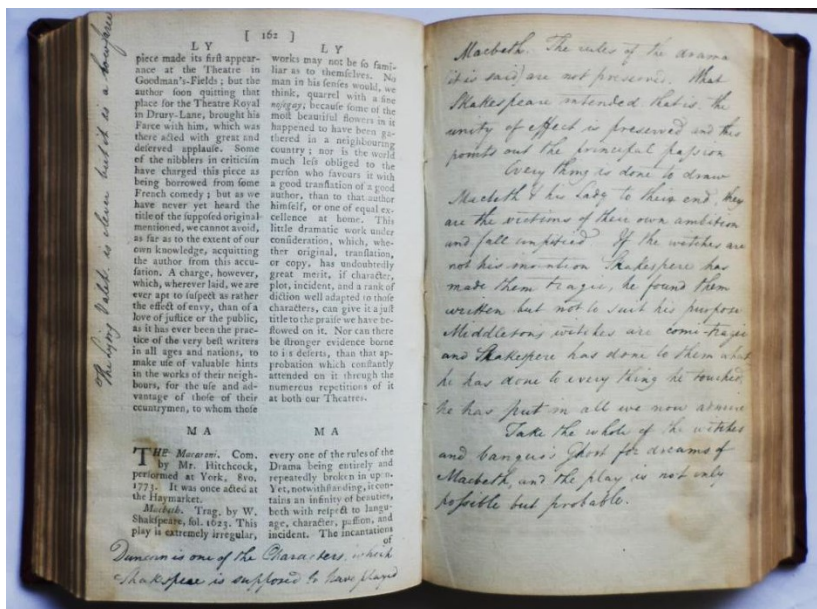 [ 162 ]
L Y
piece made its firſt appear-
ance at the Theatre in
Goodman's-Fields; but the
author ſoon quitting that
place for the Theatre Royal
in Drury-Lane, brought his
Farce with him, which was
there acted with great and
deſerved applauſe. Some
of the nibblers in criticiſm
have charged this piece as
being borrowed from ſome
French comedy; but as we
have never yet heard the
title of the ſuppoſed original
mentioned, we cannot avoid,
as far as to the extent of our
own knowledge, acquitting
the author from this accu-
ſation. A charge, however,
which, wherever laid, we are
ever apt to ſuſpect as rather
the effect of envy, than of a
love of juſtice or the public,
as it has ever been the prac-
tice of the very beſt writers
in all ages and nations, to
make uſe of valuable hints
in the works of their neigh-
bours, for the uſe and ad-
vantage of thoſe of their
countrymen, to whom thoſe
L Y
works may not be ſo fami-
liar as to themſelves. No
man in his ſenſes would, we
think, quarrel with a fine
noſegay, becauſe ſome of the
moſt beautiful flowers in it
happened to have been ga-
thered in a neighbouring
country; nor is the world
much leſs obliged to the
perſon who favours it with
a good tranſlation of a good
author, than to that author
himſelf, or one of equal ex-
cellence at home. This
little dramatic work under
conſideration, which, whe-
ther original, tranſlation,
or copy, has undoubtedly
great merit, if character,
plot, incident, and a rank of
diction well adapted to thoſe
characters, can give it a juſt
title to the praiſe we have be-
ſtowed on it. Nor can there
be ſtronger evidence borne
to its deſerts, than that ap-
probation which conſtantly
attended on it through the
numerous repetitions of it
at both our Theatres.
M A
THE Macaroni. Com.
by Mr. Hitchcock,
performed at York, 8vo.
1773. It was once acted at
the Haymarket.
Macbeth. Trag. by W.
Shakſpeare, fol. 1623. This
play is extremely irregular,
M A
every one of the rules of the
Drama being entirely and
repeatedly broken in upon.
Yet, notwithſtanding, it con-
tains an infinity of beauties,
both with reſpect to langu-
age, character, paſſion, and
incident. The incantations
of
The Lying Valet is clever but it is a low farce
Duncan is one of the Characters, which
Shakspere is supposed to have played
Macbeth. The rules of the drama
it is said, are not preserved. What
Shakespeare intended that is, the
unity of effect is preserved and this
points out the principal passion
Every thing is done to draw
Macbeth & his Lady to their end, they
are the victims of their own ambition
and fall unpitied If the witches are
not his invention Shakespere has
made them tragic, he found them
written but not to suit his purpose
Middletons witches are comi-tragic
and Shakespere has done to them what
he has done to every thing he touched,
he has put in all we now admire
Take the whole of the witches
and banquo's Ghost for dreams of
Macbeth, and the play is not only
possible but probable.